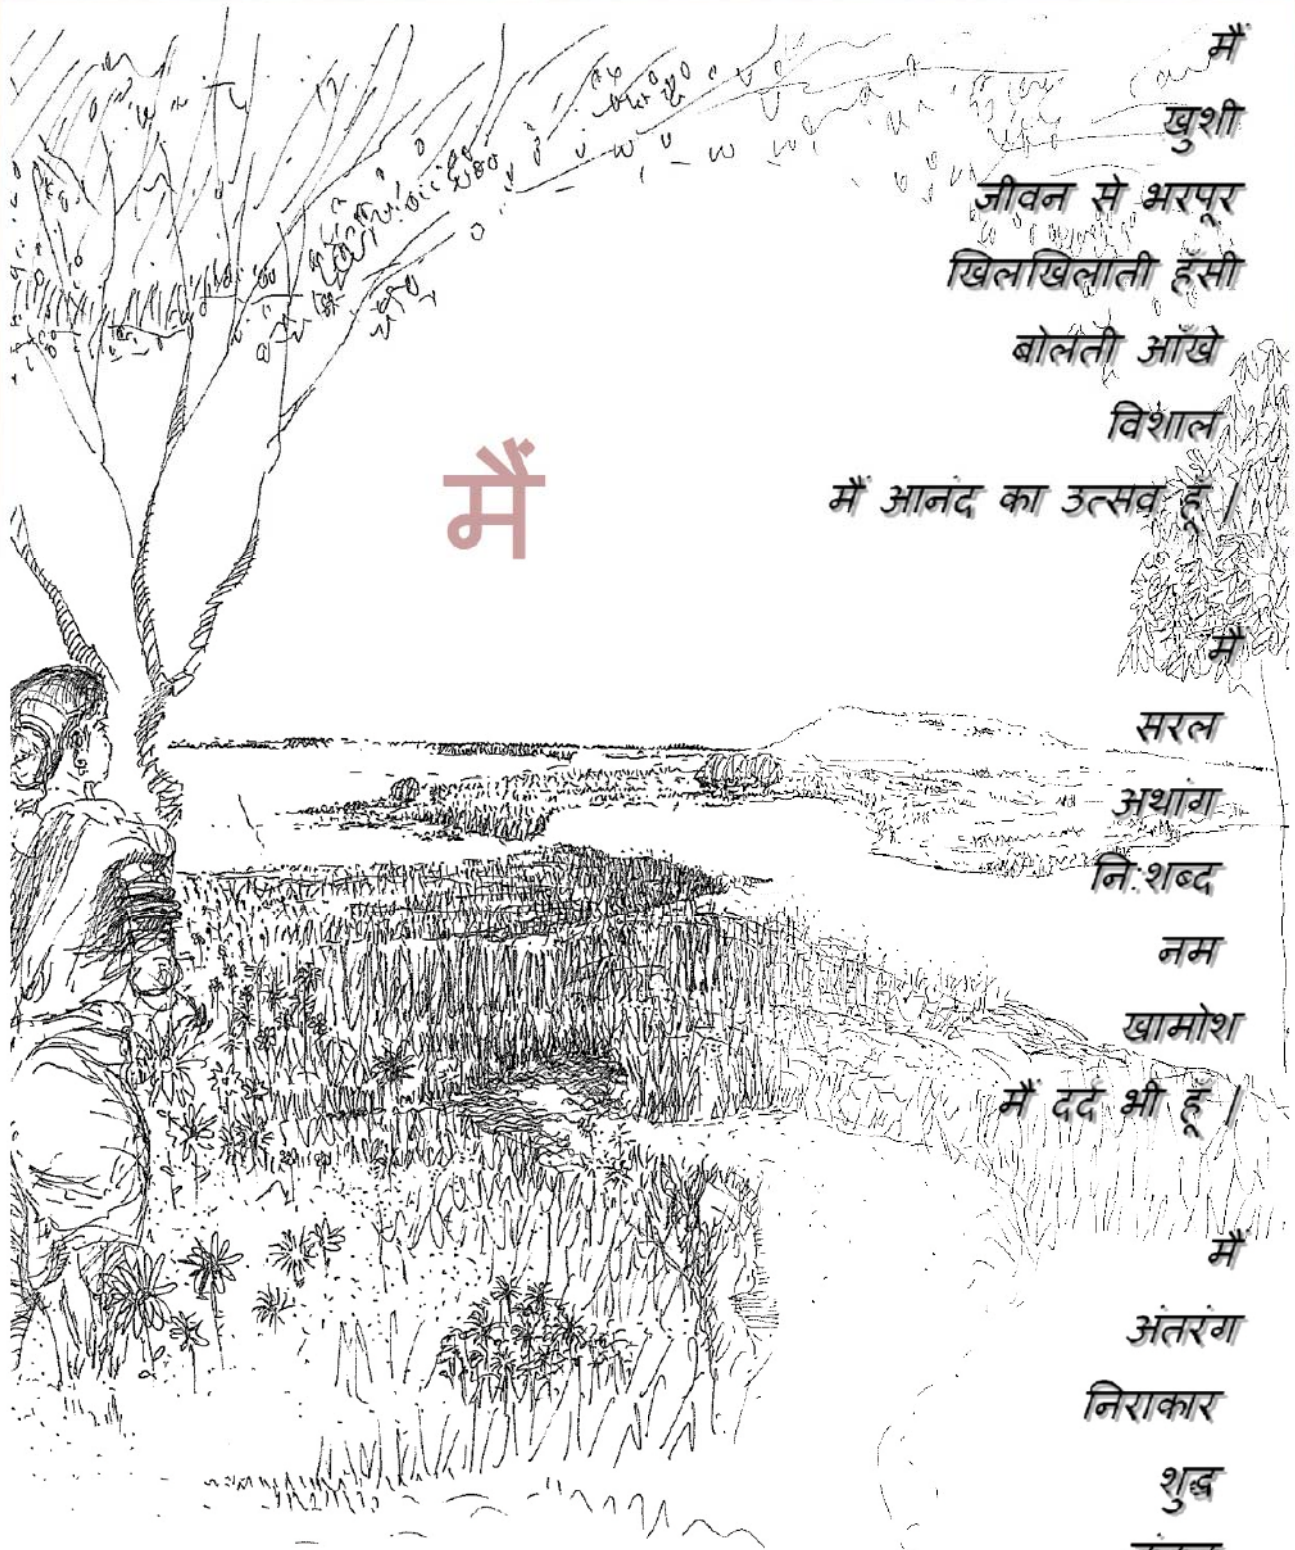 मैं
मैं
खुशी
जीवन से भरपूर
खिलखिलाती हँसी
बोलती आँखे
विशाल
मैं आनंद का उत्सव हूँ |
मैं
सरल
अथांग
नि:शब्द
नम
खामोश
मैं दर्द भी हूँ |
मैं
अंतरंग
निराकार
शुद्ध